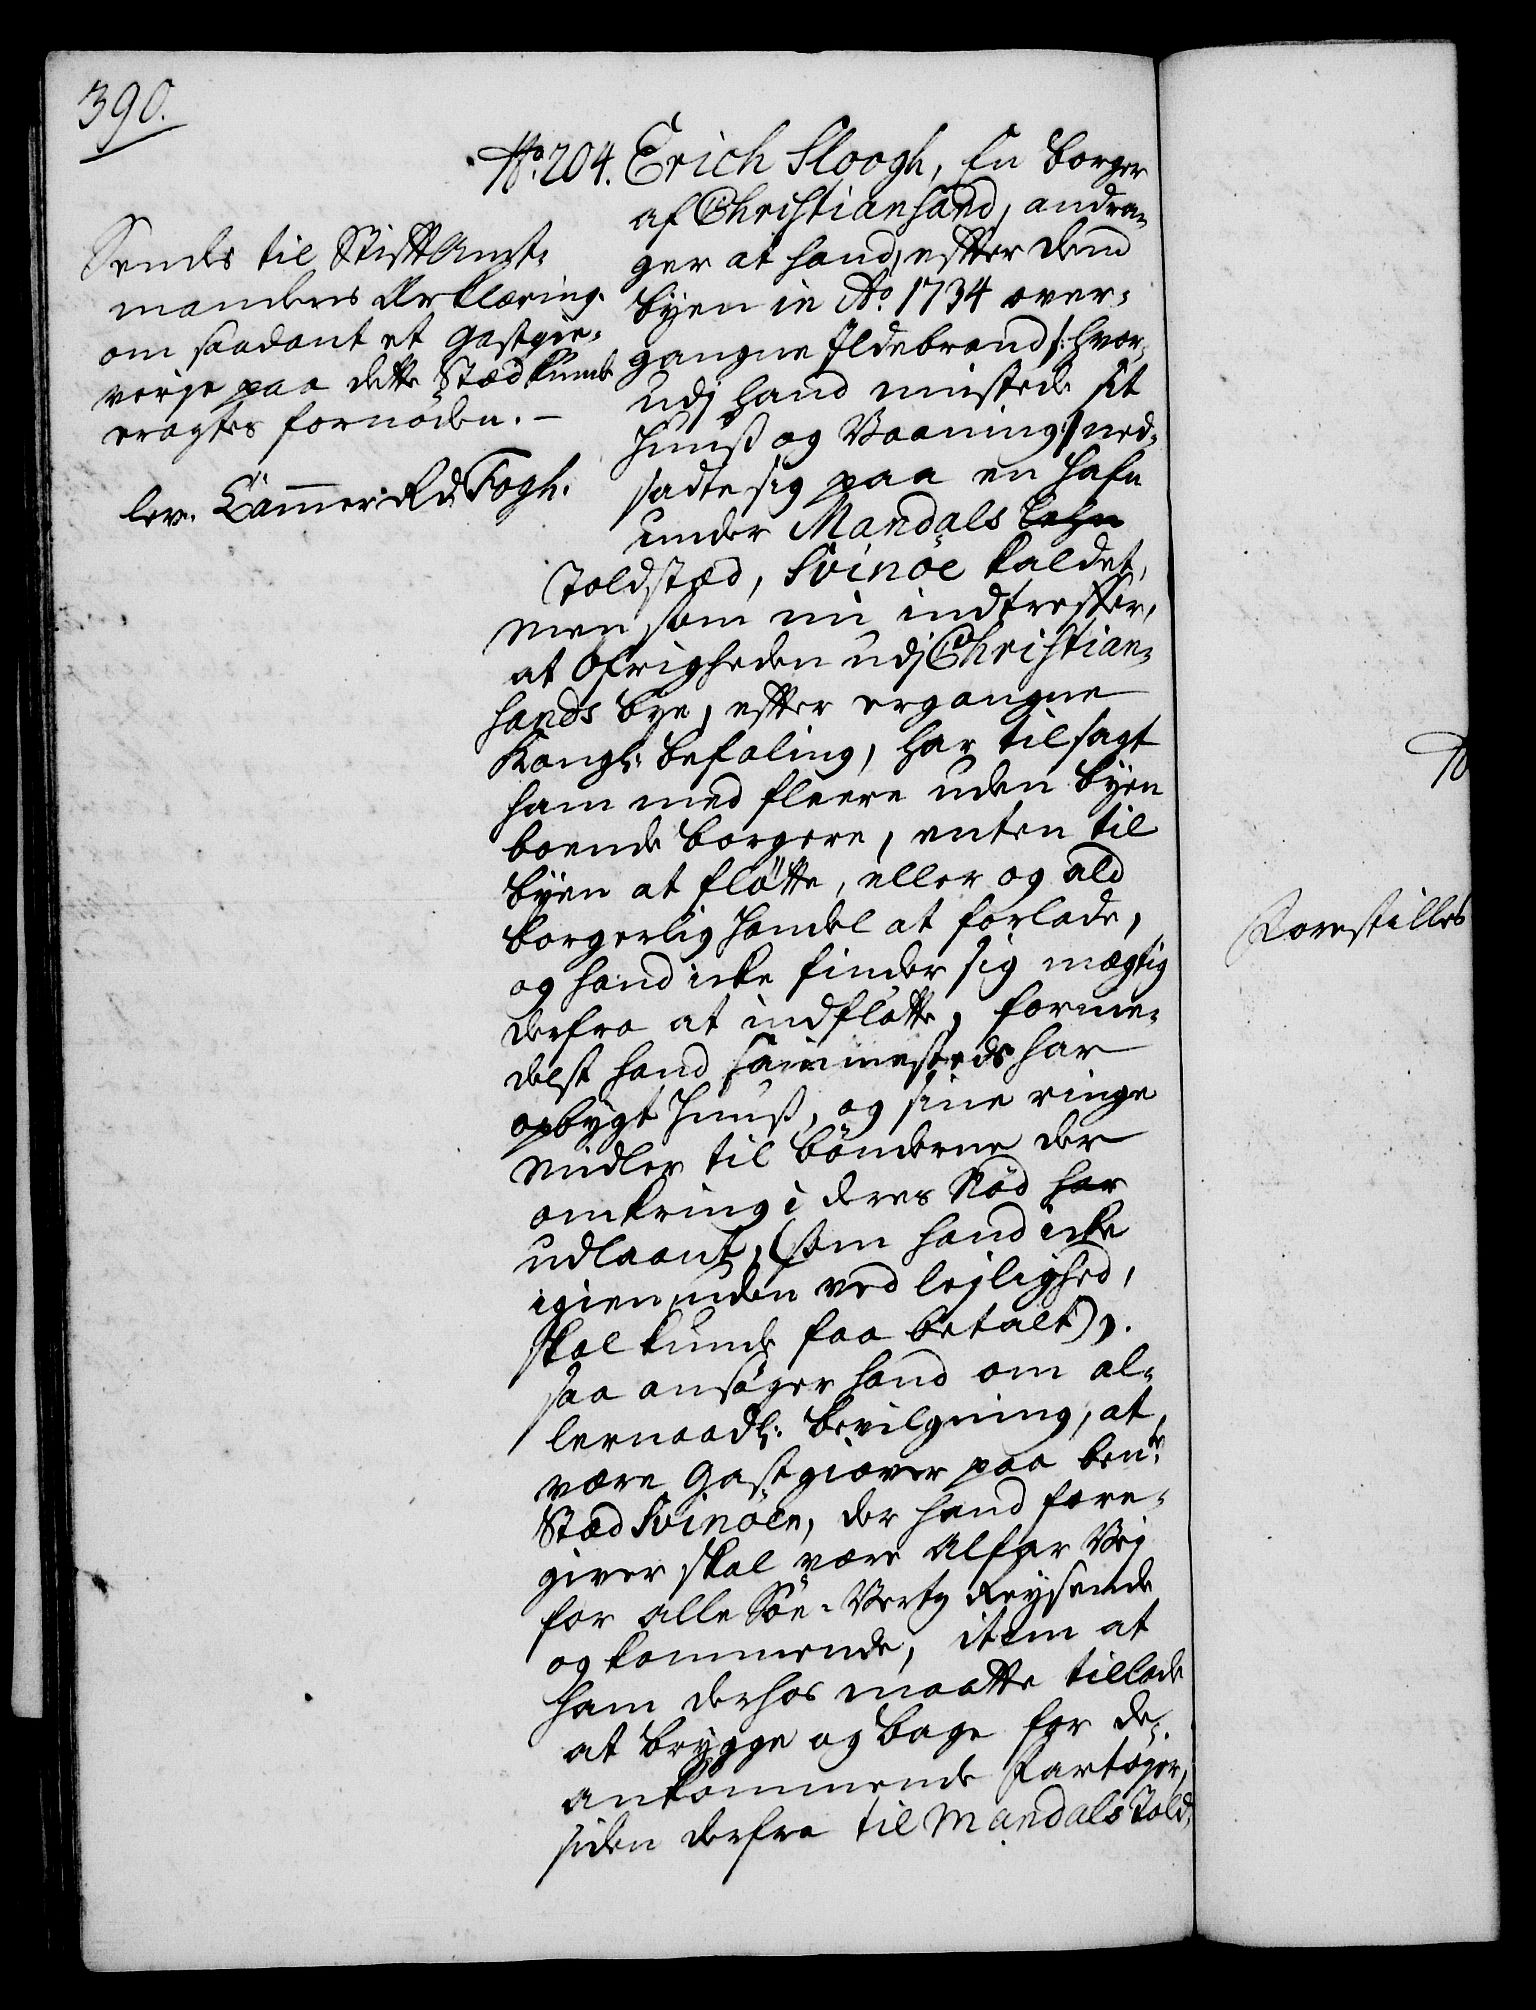 390.
No. 204. Erich Sloogh, En borger
af Christiansand, andra-
ger at hand, efter dend
byen in Ao. 1734 over-
gangne Ildebrand /: hvor-
udj hand mistede sit
Huuß og Vaaning :/ ned-
sadte sig paa en hafn
under Mandals Lehn
Toldstæd, Svinöe kaldet,
men som nu indtreffer,
at Øfrigheden udj Christian-
sands bye, efter ergangne
Kongl: befaling, har tilsagt
ham med fleere uden byen
boende borgere, enten til
byen at fløtte, eller og ald
borgerlig handel at forlade,
og hand icke finder sig mægtig
derfra at indfløtte, forme-
delst hand sammesteds har
opbygt Huuß, og sine ringe
midler til bönderne der
omkring i deres Nöd har
udlaant, (som hand icke
igien, uden ved lejlighed,
skal kunde faa betalt),
saa ansöger hand om al-
lernaadl: bevilgning, at
være Gastgiæver paa bente.
Stæd Svinöen, der hand fore-
giver skal være Alfar Vej
for alle Söe-Verts Reysende
og kommende, item at
ham derhos maatte tillade
at brygge og bage for de
ankommende Fartöger,
siden derfra til Mandals Told-
Sendes til Stiftamt-
mandens Erklæring
om saadant et Gastgie-
verje paa dette Stæd kunde
eragtes fornöden. -
lev. Cammer Rd. Fogh.
Forestilles